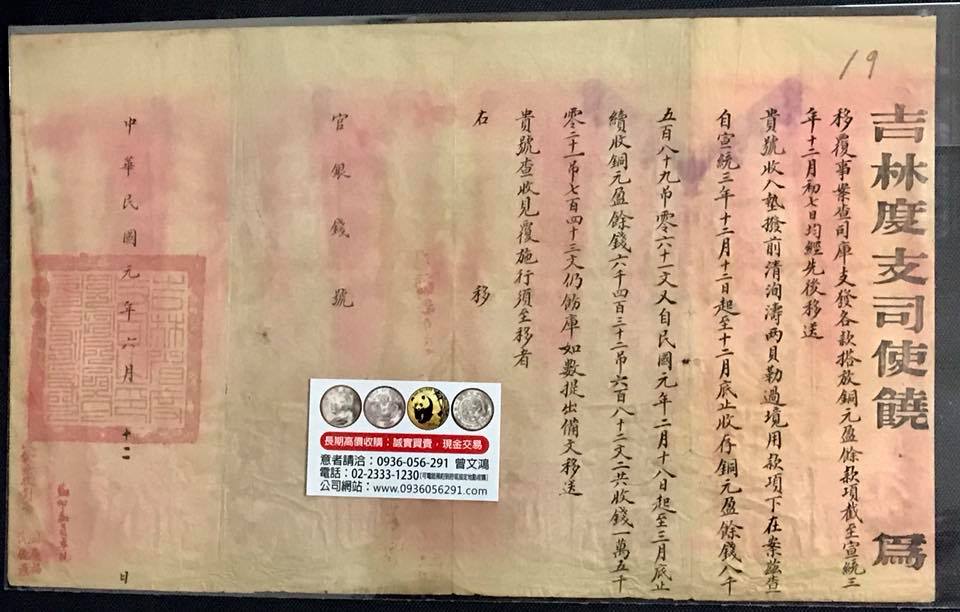 19
吉林度支司使饒 為
移覆事案查司庫支發各款搭放銅元盈餘款項截至宣統三
年十二月初七日均經先後移送
貴號收入墊撥前清洵濤兩貝勒過境用款項下在案茲查
自宣統三年十二月十二日起至十二月底止收存銅元盈餘錢八千
五百八十九吊零六十一文又自民國元年二月十八日起至三月底止
續收銅元盈餘錢六千四百三十二吊六百八十二文二共收錢一萬五千
零二十一吊七百四十三文仍飭庫如數提出備文移送
貴號查收見覆施行須至移者
右 移
官銀錢號
中華民國元年六月 十二 日
長期高價收購：誠實買賣，現金交易
意者請洽：0936-056-291 曾文鴻
電話：02-2333-1230
公司網站：www.0936056291.com